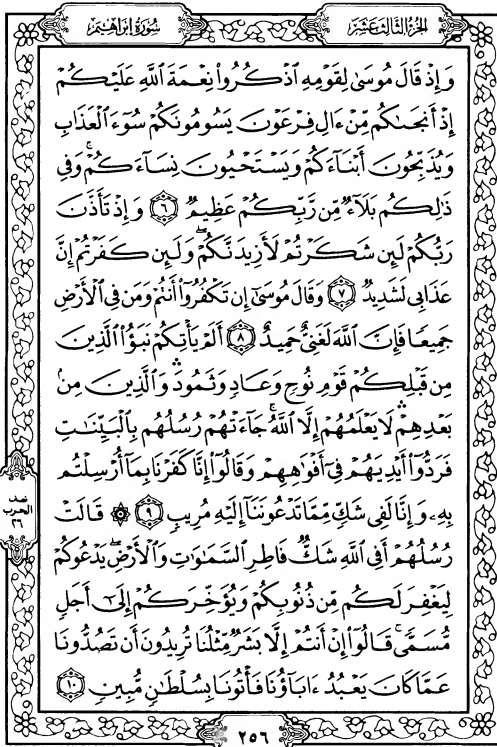 سُورَةُ إِبْرَاهِيم
الجُزْءُ الثَّالِثَ عَشَرَ
وَإِذْ قَالَ مُوسَىٰ لِقَوْمِهِ ٱذْكُرُوا۟ نِعْمَةَ ٱللَّهِ عَلَيْكُمْ
إِذْ أَنجَىٰكُم مِّنْ ءَالِ فِرْعَوْنَ يَسُومُونَكُمْ سُوٓءَ ٱلْعَذَابِ
وَيُذَبِّحُونَ أَبْنَآءَكُمْ وَيَسْتَحْيُونَ نِسَآءَكُمْ ۚ وَفِى
ذَٰلِكُم بَلَآءٌ مِّن رَّبِّكُمْ عَظِيمٌ ٦ وَإِذْ تَأَذَّنَ
رَبُّكُمْ لَئِن شَكَرْتُمْ لَأَزِيدَنَّكُمْ ۖ وَلَئِن كَفَرْتُمْ إِنَّ
عَذَابِى لَشَدِيدٌ ٧ وَقَالَ مُوسَىٰٓ إِن تَكْفُرُوٓا۟ أَنتُمْ وَمَن فِى ٱلْأَرْضِ
جَمِيعًا فَإِنَّ ٱللَّهَ لَغَنِىٌّ حَمِيدٌ ٨ أَلَمْ يَأْتِكُمْ نَبَؤُا۟ ٱلَّذِينَ
مِن قَبْلِكُمْ قَوْمِ نُوحٍ وَعَادٍ وَثَمُودَ ۛ وَٱلَّذِينَ مِنۢ
بَعْدِهِمْ ۛ لَا يَعْلَمُهُمْ إِلَّا ٱللَّهُ ۚ جَآءَتْهُمْ رُسُلُهُم بِٱلْبَيِّنَٰتِ
فَرَدُّوٓا۟ أَيْدِيَهُمْ فِىٓ أَفْوَٰهِهِمْ وَقَالُوٓا۟ إِنَّا كَفَرْنَا بِمَآ أُرْسِلْتُم
بِهِۦ وَإِنَّا لَفِى شَكٍّ مِّمَّا تَدْعُونَنَآ إِلَيْهِ مُرِيبٍ ٩ ۞ قَالَتْ
رُسُلُهُمْ أَفِى ٱللَّهِ شَكٌّ فَاطِرِ ٱلسَّمَٰوَٰتِ وَٱلْأَرْضِ ۖ يَدْعُوكُمْ
لِيَغْفِرَ لَكُم مِّن ذُنُوبِكُمْ وَيُؤَخِّرَكُمْ إِلَىٰٓ أَجَلٍ
مُّسَمًّى ۚ قَالُوٓا۟ إِنْ أَنتُمْ إِلَّا بَشَرٌ مِّثْلُنَا تُرِيدُونَ أَن تَصُدُّونَا
عَمَّا كَانَ يَعْبُدُ ءَابَآؤُنَا فَأْتُونَا بِسُلْطَٰنٍ مُّبِينٍ ١٠
نصف
الحزب
٢٦
٢٥٦